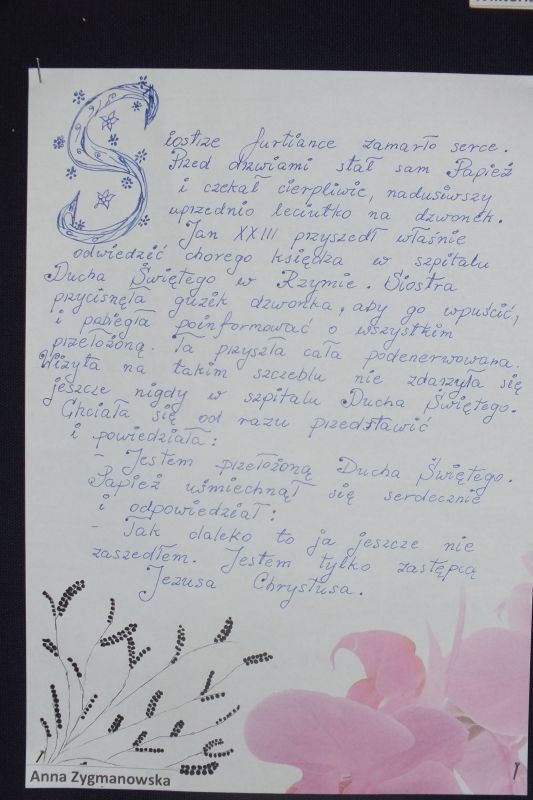 Siostrze furtiance zamarło serce.
Przed drzwiami stał sam Papież
i czekał cierpliwie, nadusiwszy
uprzednio leciutko na dzwonek.
Jan XXIII przyszedł właśnie
odwiedzić chorego księdza w szpitalu
Ducha Świętego w Rzymie. Siostra
przycisnęła guzik dzwonka, aby go wpuścić,
i pobiegła poinformować o wszystkim
przełożoną. Ta przyszła cała podenerwowana.
Wizyta na takim szczeblu nie zdarzyła się
jeszcze nigdy w szpitalu Ducha Świętego.
Chciała się od razu przedstawić
i powiedziała:
- Jestem przełożoną Ducha Świętego.
Papież uśmiechnął się serdecznie
i odpowiedział:
- Tak daleko to ja jeszcze nie
zaszedłem. Jestem tylko zastępcą
Jezusa Chrystusa.
Anna Zygmanowska